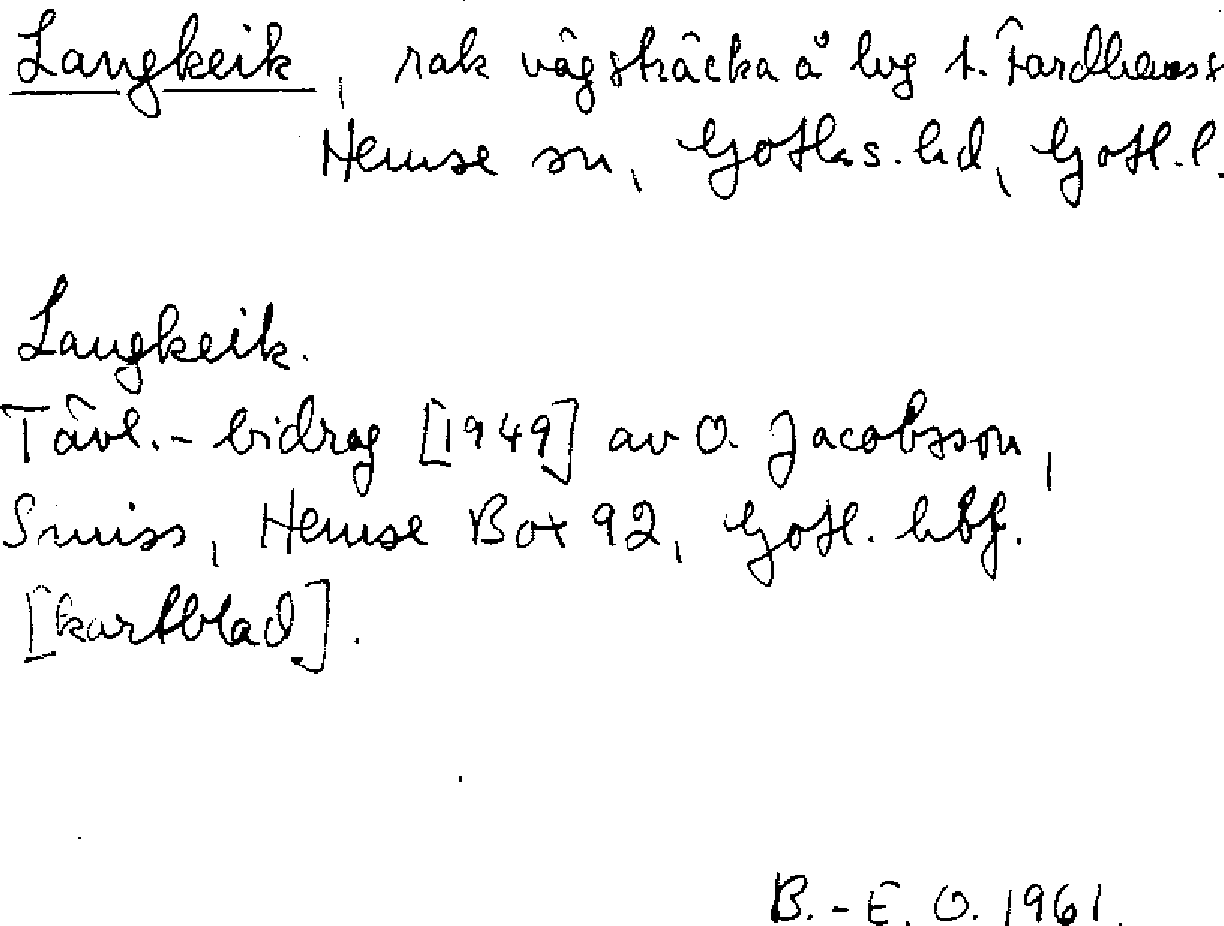 Langkeik, rak vägsträcka å lvg t. Fardhems
Hemse sn, Gotlas. hd, Gotl. l.
Langkeik.
Tävl.- bidrag [1949] av O. Jacobsson,
Smiss, Hemse Box 92, Gotl. hbf.
[kartblad].
B.-E. O. 1961.